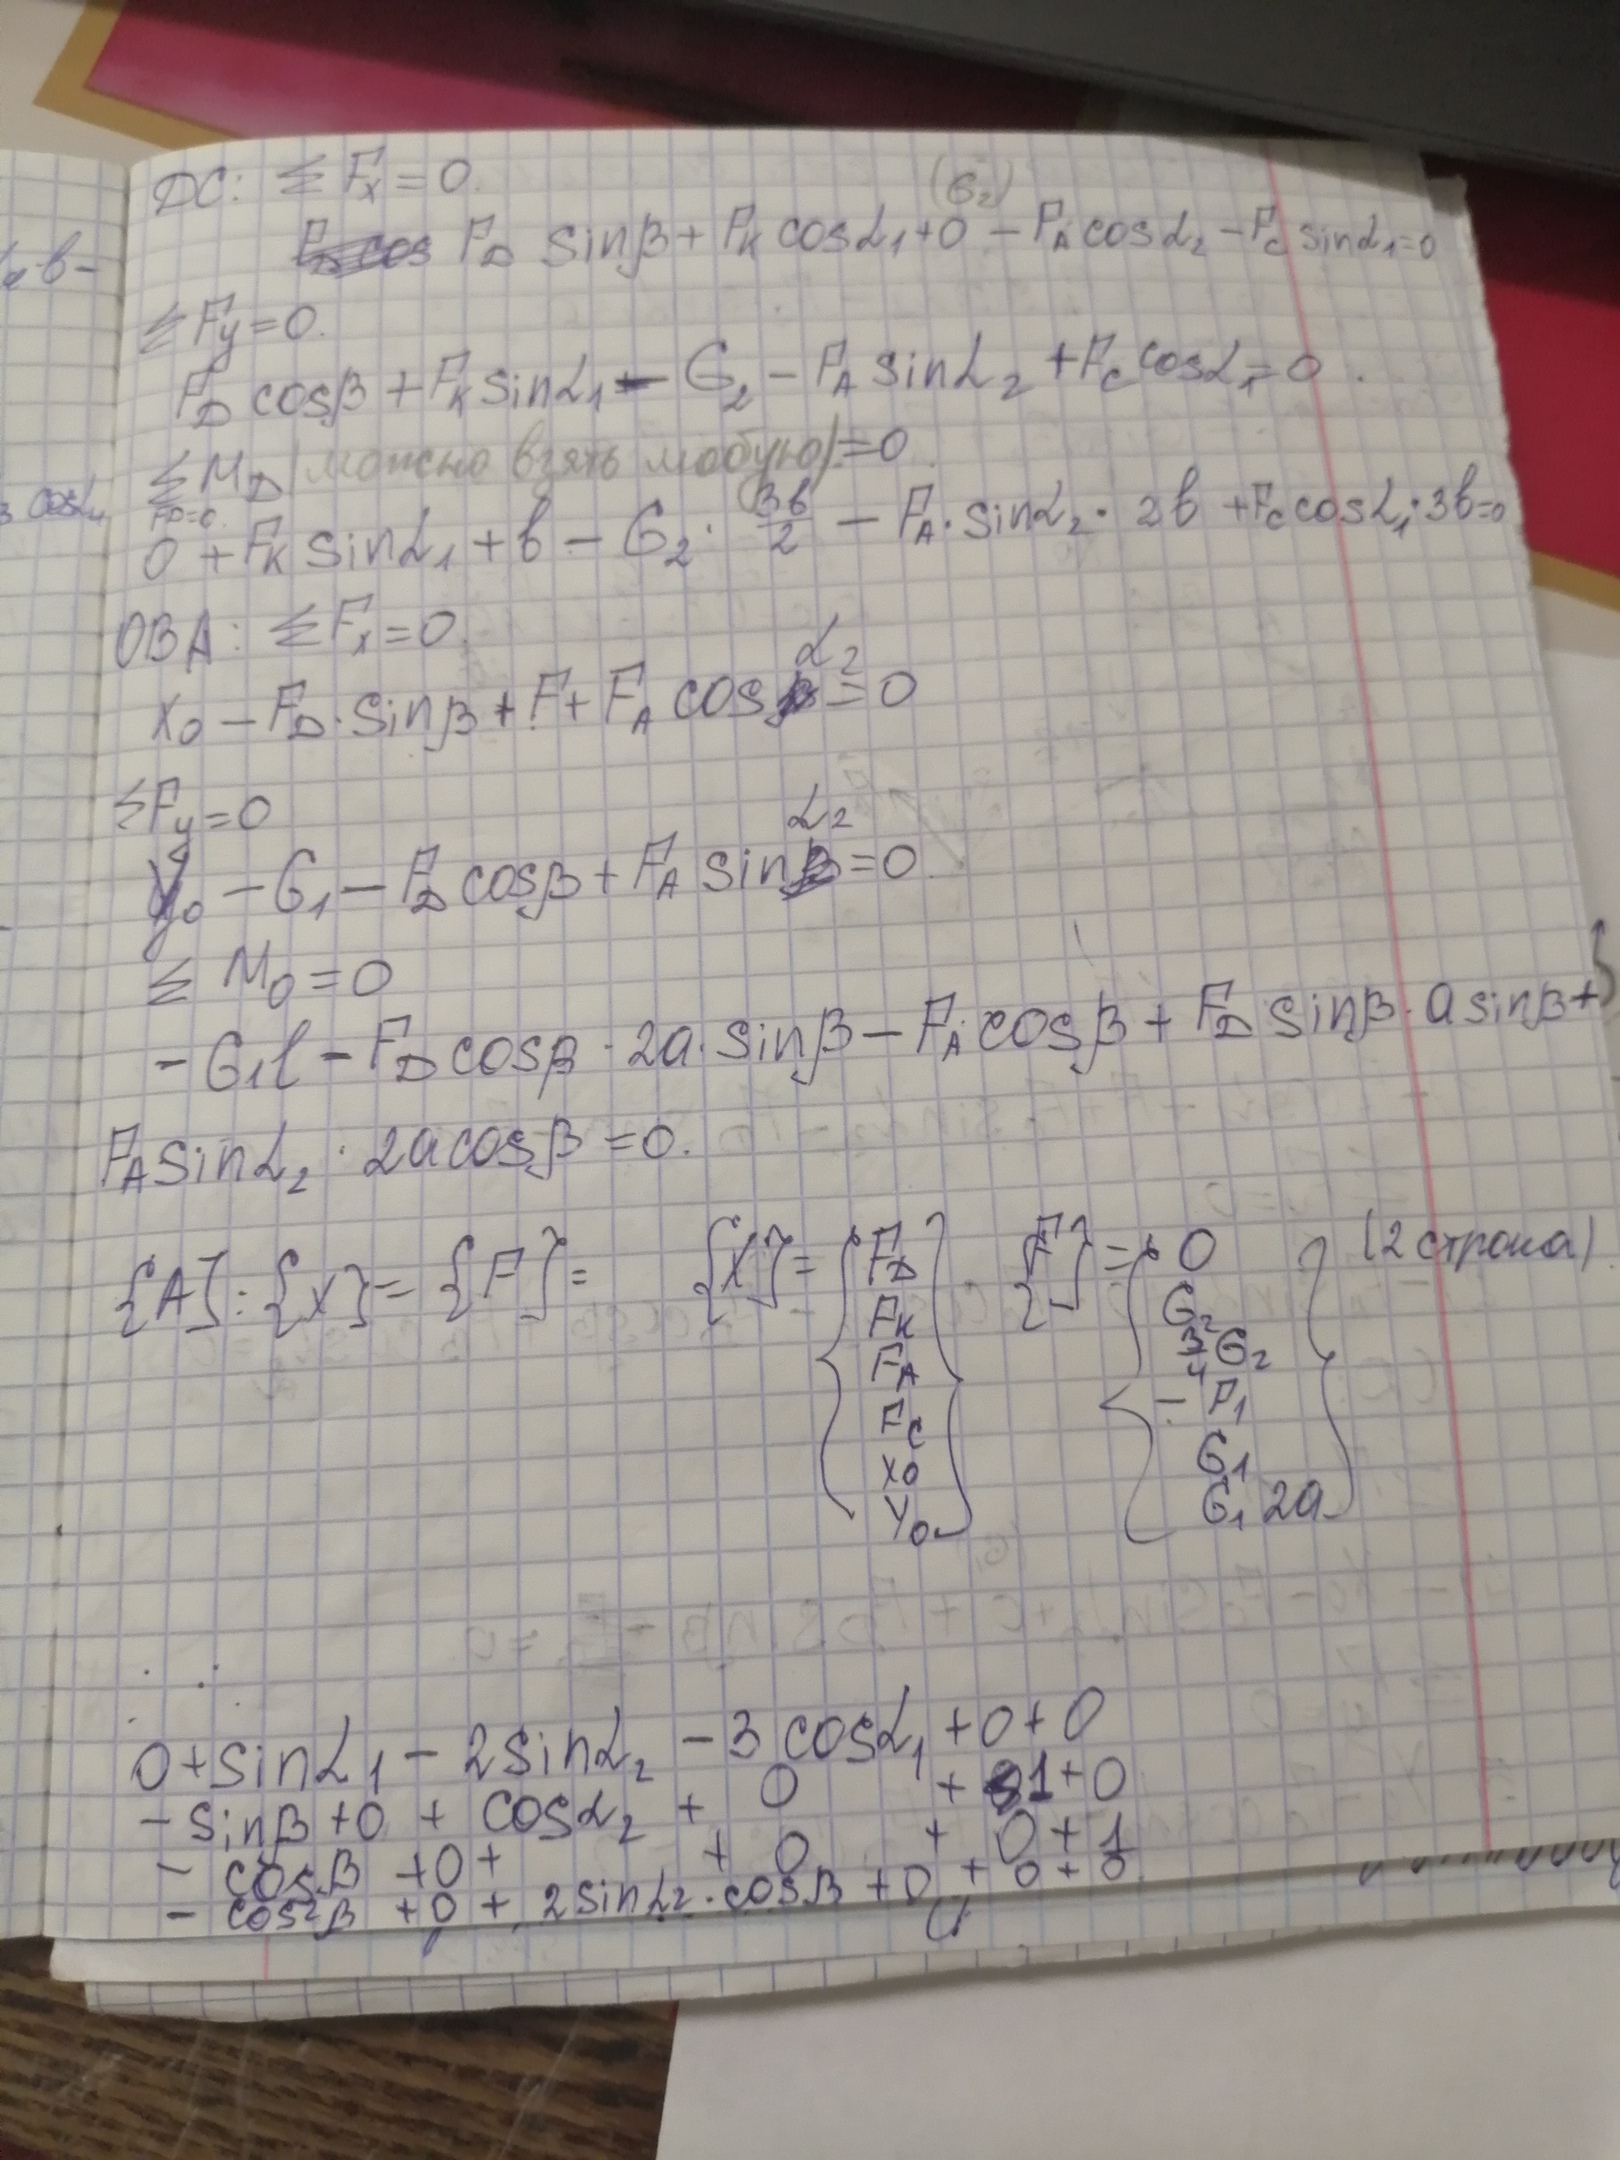 ДС: ΣFx = 0.
(G₂)
F_D sinβ + F_K cosα₁ + 0 − F_A cosα₂ − F_C sinα₁ = 0
ΣFy = 0.
F_D cosβ + F_K sinα₁ − G₂ − F_A sinα₂ + F_C cosα₁ = 0.
ΣM_D (можно взять любую) = 0.
F_D=0.
0 + F_K sinα₁ + b − G₂ · 3b/2 − F_A · sinα₂ · 2b + F_C cosα₁ · 3b = 0
ОВА: ΣFx = 0.
x₀ − F_D · sinβ + F + F_A cos α₂ = 0
ΣFy = 0
Y₀ − G₁ − F_D cosβ + F_A sin α₂ = 0.
ΣM₀ = 0
− G₁l − F_D cosβ · 2a · sinβ − F_A · cosβ + F_D sinβ · a sinβ +
F_A sinα₂ · 2a cosβ = 0.
{A} : {x} = {F} = {X} = { F_D {F} = { 0 } (2 строка)
F_K G₂
F_A 3/4 G₂
F_C − F₁
x₀ G₁
Y₀ } G₁ 2a
0 + sinα₁ − 2sinα₂ − 3 cosα₁ + 0 + 0
− sinβ + 0 + cosα₂ + 0 + 1 + 0
− cosβ + 0 + + 0 + 0 + 1
− cos2β + 0 + 2sinα₂ · cosβ + 0 + 0 + 0